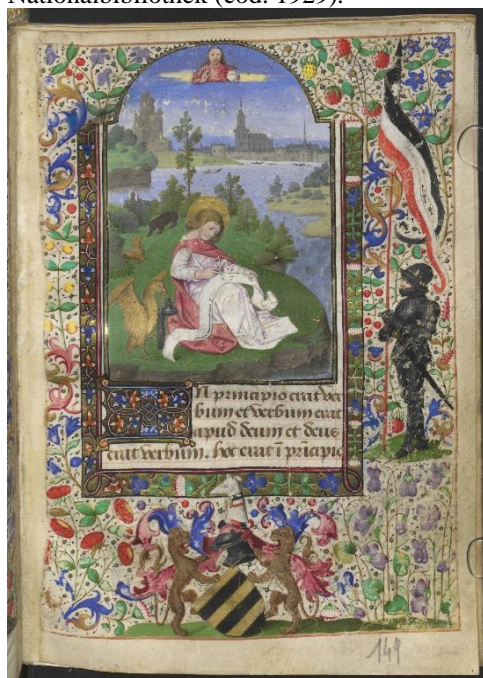 Nationalbibliothek (cod. 1929).
N principio erat ver
bum et verbum erat
apud deum et deus
erat verbum. hoc erat ī
149